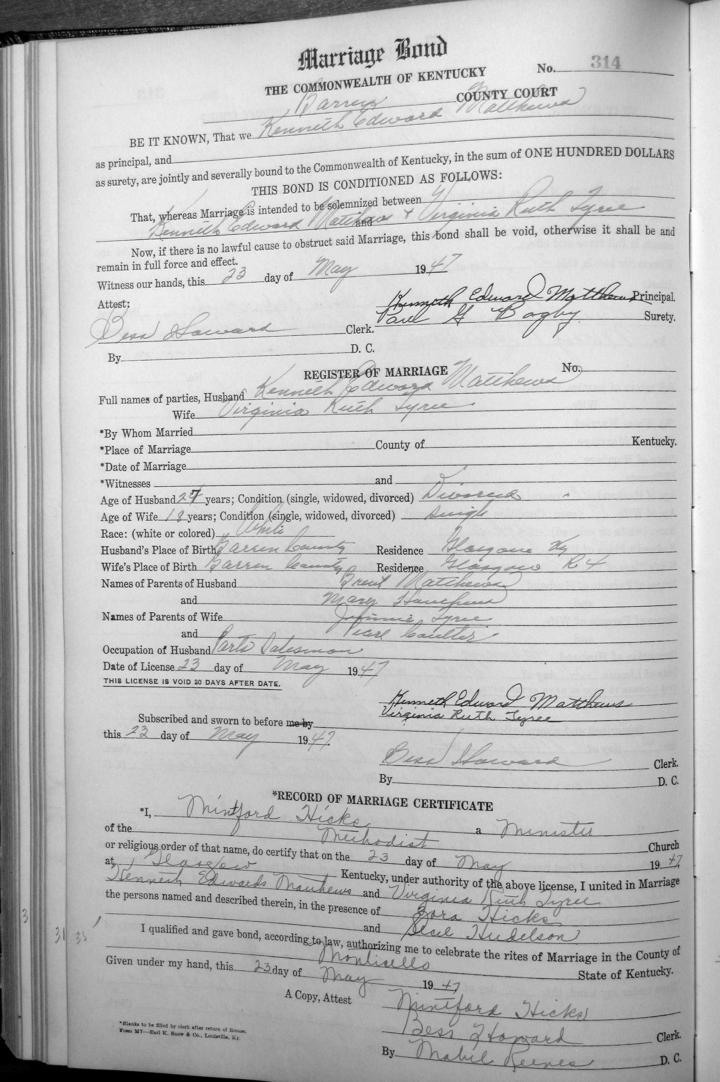 Marriage Bond
THE COMMONWEALTH OF KENTUCKY No. 314
Barren COUNTY COURT
BE IT KNOWN, That we Kenneth Edward Matthews
as principal, and
as surety, are jointly and severally bound to the Commonwealth of Kentucky, in the sum of ONE HUNDRED DOLLARS
THIS BOND IS CONDITIONED AS FOLLOWS:
That, whereas Marriage is intended to be solemnized between
Kenneth Edward Matthews and + Virginia Ruth Tyree
Now, if there is no lawful cause to obstruct said Marriage, this bond shall be void, otherwise it shall be and
remain in full force and effect.
Witness our hands, this 23 day of May 1947
Attest: Kenneth Edward Matthews Principal.
Bess Howard Clerk. Paul G Bagby Surety.
By D. C.
REGISTER OF MARRIAGE No.
Full names of parties, Husband Kenneth Edward Matthews
Wife Virginia Ruth Tyree
*By Whom Married
*Place of Marriage County of Kentucky.
*Date of Marriage
*Witnesses and
Age of Husband 27 years; Condition (single, widowed, divorced) Divorced
Age of Wife 18 years; Condition (single, widowed, divorced) single
Race: (white or colored) White
Husband's Place of Birth Barren County Residence Glasgow Ky
Wife's Place of Birth Barren County Residence Glasgow R 4
Names of Parents of Husband Brent Matthews
and Mary
Names of Parents of Wife Jimmie Tyree
and Pearl Coulter
Occupation of Husband Parts Salesman
Date of License 23 day of May 1947
THIS LICENSE IS VOID 30 DAYS AFTER DATE.
Kenneth Edward Matthews
Virginia Ruth Tyree
Subscribed and sworn to before me by
this 23 day of May 1947
Bess Howard Clerk.
By D. C.
*RECORD OF MARRIAGE CERTIFICATE
*I, Mintford Hicks a Minister
of the Methodist Church
or religious order of that name, do certify that on the 23 day of May 1947
at Glasgow Kentucky, under authority of the above license, I united in Marriage
Kenneth Edwards Matthews and Virginia Ruth Tyree
the persons named and described therein, in the presence of Zora Hicks
and Hudelson
I qualified and gave bond, according to law, authorizing me to celebrate the rites of Marriage in the County of
Monticello State of Kentucky.
Given under my hand, this 23 day of May 1947
Mintford Hicks
A Copy, Attest Bess Howard Clerk.
By Mabil Reenes D. C.
*Blanks to be filled by clerk after return of license.